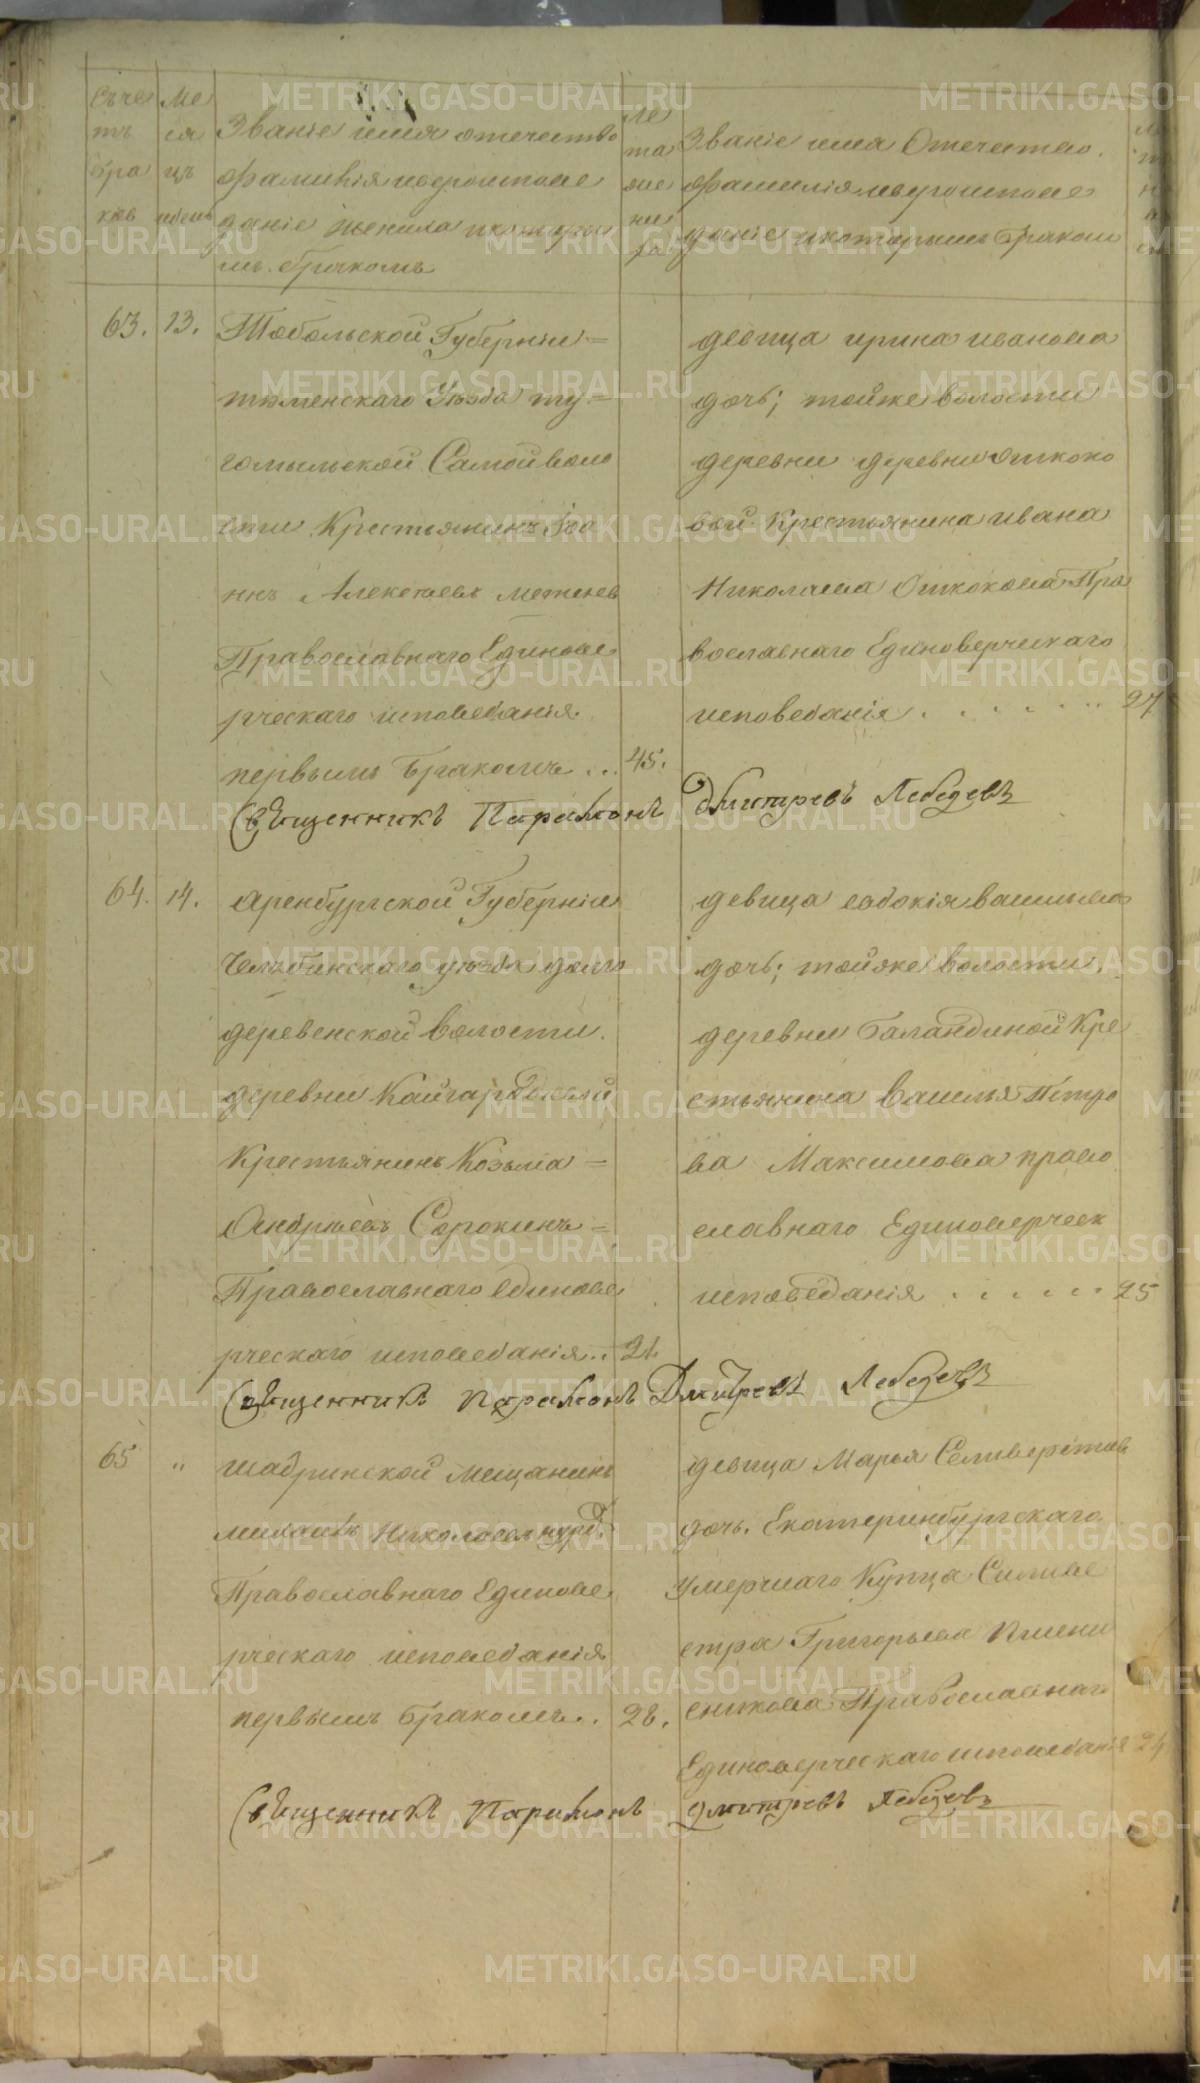 Счетъ браковъ
Месяцъ и день
Званіе имя отечество
фамилія и вероиспове
даніе жениха и которы
мъ бракомъ
Лета жениха
Званіе имя Отечество.
фамилія и вероиспове
даніе и которымъ браком
63. 13.
Тобольской Губерніи =
тюменскаго Уѣзда ту=
гомыльской Самой воло
сти Крестьянинъ Іоа
ннъ Алексѣевъ
Православнаго Единове
рческаго исповеданія
первымъ Бракомъ ... 45.
девица ирина иванова
дочь; тойже волости
деревни деревни Ошкоко
вой Крестьянина ивана
Николаева Ошкокова Пра
вославнаго Единоверчискаго
исповеданія . . . . . . . 27
Свѣщенникъ Парамонъ Дмитревъ Лебедевъ
64. 14.
Аренбургской Губерніи
Челябинскаго уѣзда долго
деревенской волости.
деревни
Крестьянинъ Козьма =
Андрѣевъ Сорокинъ =
Православнаго Единове
рческаго исповеданія .. 21.
девица евдокія васильева
дочь; тойже волости,
деревни Баландиной Кре
стьянина Василья Петро
ва Максимова право
славнаго Единоверческ
исповеданія . . . . . . 25
Свѣщенникъ Парамонъ Дмитревъ Лебедевъ
65 "
шадринской мещанинъ
михаилъ Николаевъ
Православнаго Единове
рческаго исповеданія
первымъ бракомъ .. 28.
девица Марья Селиверстов
дочь. Екатеринбургскаго
умершаго Купца Силиве
стра Григорьева Пшени
сникова Православнаго
Единоверческаго исповеданія 24
Свѣщенникъ Парамонъ Дмитревъ Лебедевъ
METRIKI.GASO-URAL.RU